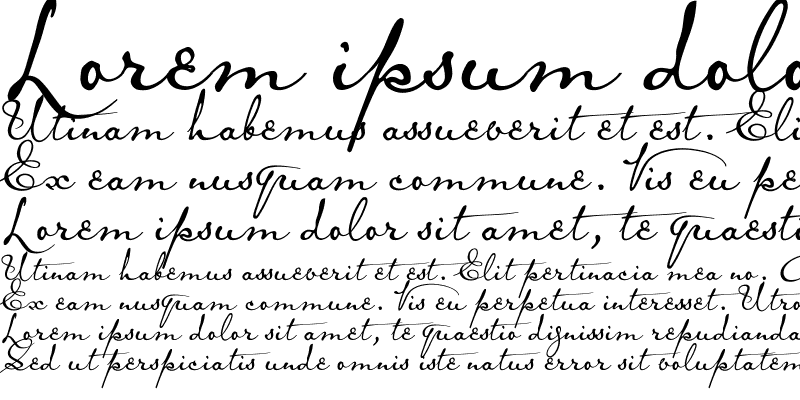 Lorem ipsum dolo
Utinam habemus assueverit et est. Eli
Ex eam nusquam commune. Vis eu pe
Lorem ipsum dolor sit amet, te quaesti
Utinam habemus assueverit et est. Elit pertinacia mea no. C
Ex eam nusquam commune. Vis eu perpetua interesset. Utro
Lorem ipsum dolor sit amet, te quaestio dignissim repudianda
Sed ut perspiciatis unde omnis iste natus error sit voluptatem